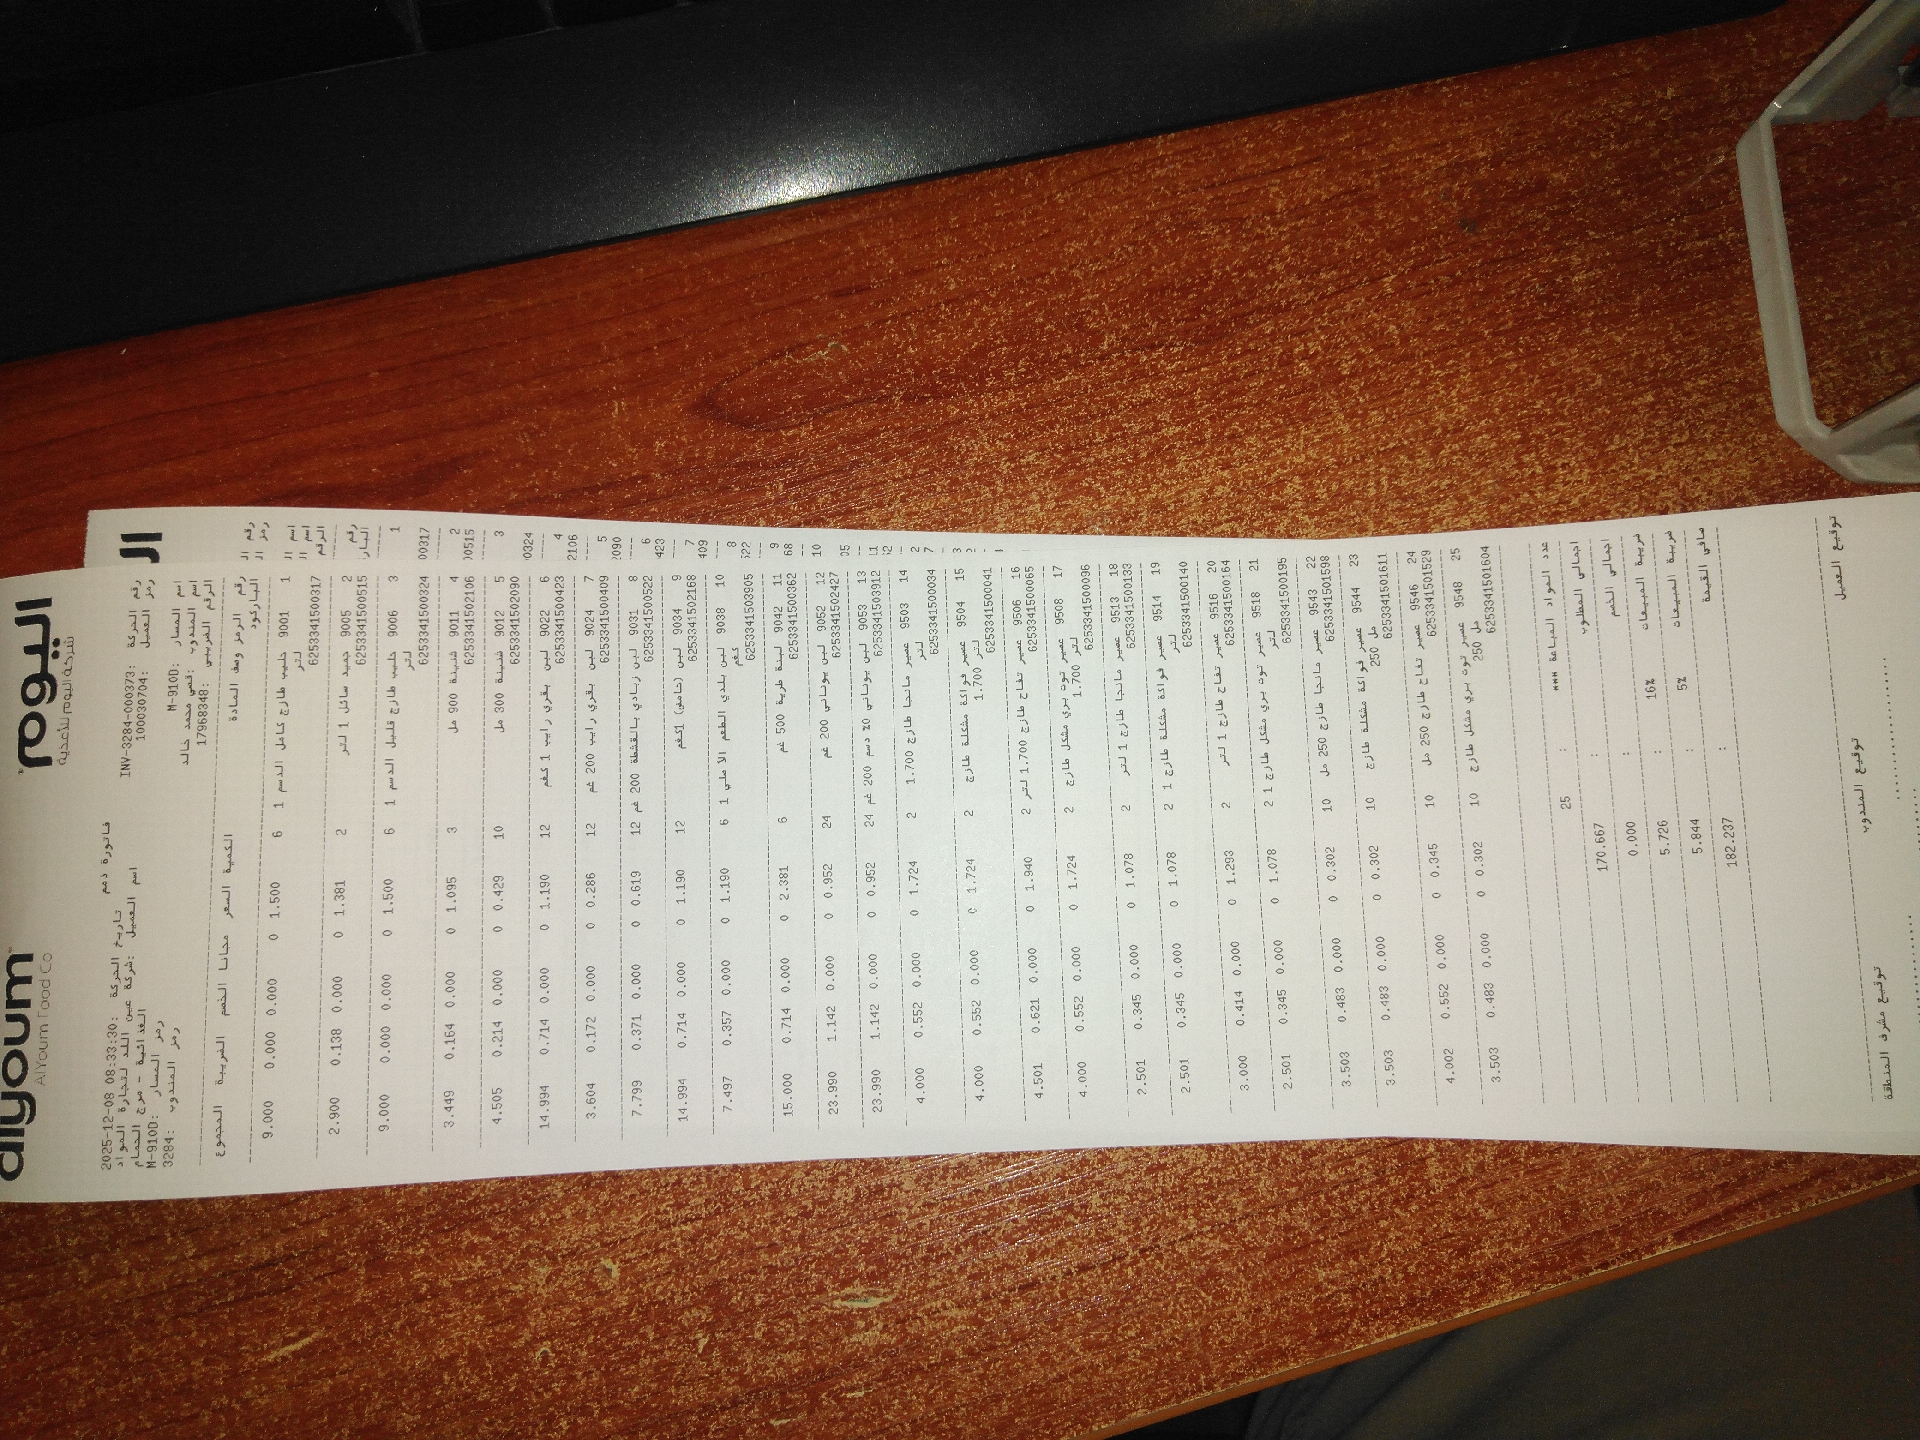 اليوم alyoum
شركة اليوم للأغذية AlYoum Food Co
فاتورة ذمم
رقم الحركة: INV-3284-000373 تاريخ الحركة: 2025-12-08 08:33:30
رمز العميل: 1000030704 اسم العميل: شركة عين اللد لتجارة المواد
الغذائية - مرج الحمام
اسم المسار: M-910D رمز المسار: M-910D
اسم المندوب: قصي محمد خالد رمز المندوب: 3284
الرقم الضريبي: 17968348
رقم الرمز وصف المادة الكمية السعر مجانا الخصم الضريبة المجموع
الباركود
1 9001 حليب طازج كامل الدسم 1 6 1.500 0 0.000 0.000 9.000
لتر
6253341500317
2 9005 جميد سائل 1 لتر 2 1.381 0 0.000 0.138 2.900
6253341500515
3 9006 حليب طازج قليل الدسم 1 6 1.500 0 0.000 0.000 9.000
لتر
6253341500324
4 9011 شنينة 900 مل 3 1.095 0 0.000 0.164 3.449
6253341502106
5 9012 شنينة 300 مل 10 0.429 0 0.000 0.214 4.505
6253341502090
6 9022 لبن بقري رايب 1 كغم 12 1.190 0 0.000 0.714 14.994
6253341500423
7 9024 لبن بقري رايب 200 غم 12 0.286 0 0.000 0.172 3.604
6253341500409
8 9031 لبن زبادي بالقشطة 200 غم 12 0.619 0 0.000 0.371 7.799
6253341500522
9 9034 لبن (حامض) 1كغم 12 1.190 0 0.000 0.714 14.994
6253341502168
10 9038 لبن بلدي الطعم الاصلي 1 6 1.190 0 0.000 0.357 7.497
كغم
6253341503905
11 9042 لبنة طرية 500 غم 6 2.381 0 0.000 0.714 15.000
6253341500362
12 9052 لبن يوناني 200 غم 24 0.952 0 0.000 1.142 23.990
6253341502427
13 9053 لبن يوناني 0% دسم 200 غم 24 0.952 0 0.000 1.142 23.990
6253341503912
14 9503 عصير مانجا طازج 1.700 2 1.724 0 0.000 0.552 4.000
لتر
6253341500034
15 9504 عصير فواكة مشكلة طازج 2 1.724 0 0.000 0.552 4.000
1.700 لتر
6253341500041
16 9506 عصير تفاح طازج 1.700 لتر 2 1.940 0 0.000 0.621 4.501
6253341500065
17 9508 عصير توت بري مشكل طازج 2 1.724 0 0.000 0.552 4.000
1.700 لتر
6253341500096
18 9513 عصير مانجا طازج 1 لتر 2 1.078 0 0.000 0.345 2.501
6253341500133
19 9514 عصير فواكة مشكلة طازج 1 2 1.078 0 0.000 0.345 2.501
لتر
6253341500140
20 9516 عصير تفاح طازج 1 لتر 2 1.293 0 0.000 0.414 3.000
6253341500164
21 9518 عصير توت بري مشكل طازج 1 2 1.078 0 0.000 0.345 2.501
لتر
6253341500195
22 9543 عصير مانجا طازج 250 مل 10 0.302 0 0.000 0.483 3.503
6253341501598
23 9544 عصير فواكة مشكلة طازج 10 0.302 0 0.000 0.483 3.503
250 مل
6253341501611
24 9546 عصير تفاح طازج 250 مل 10 0.345 0 0.000 0.552 4.002
6253341501529
25 9548 عصير توت بري مشكل طازج 10 0.302 0 0.000 0.483 3.503
250 مل
6253341501604
عدد المواد المباعة *** : 25
اجمالي المطلوب : 170.667
اجمالي الخصم : 0.000
ضريبة المبيعات 16% : 5.726
ضريبة المبيعات 5% : 5.844
صافي القيمة : 182.237
توقيع العميل توقيع المندوب توقيع مشرف المنطقة